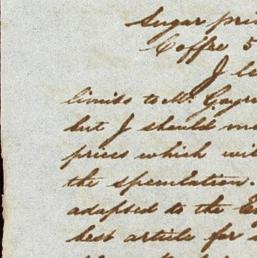 Sugar pri
Coffee 5
I le
limits to Mr. Gayre
but I should m
prices which wil
the speculation.
adapted to the E
best article for